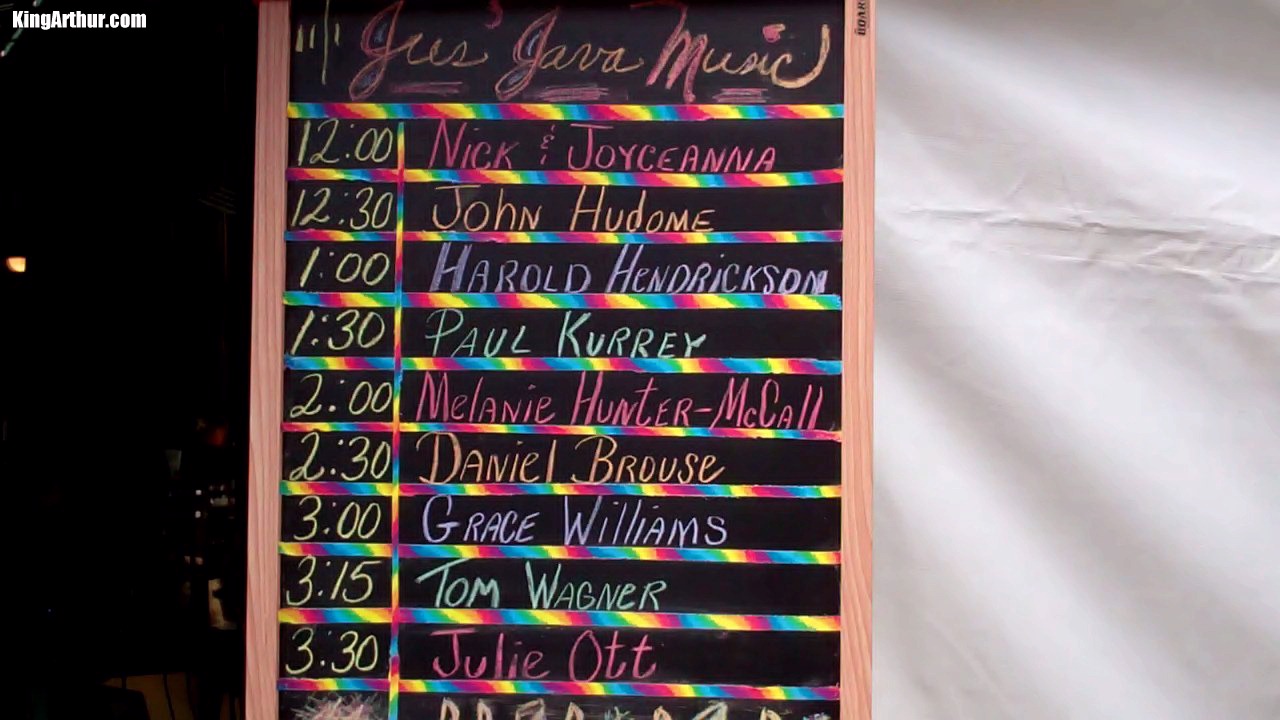 KingArthur.com
BOAR
Jus' Java Music
12:00 Nick & Joyceanna
12:30 John Hudome
1:00 Harold Hendrickson
1:30 Paul Kurrey
2:00 Melanie Hunter-McCall
2:30 Daniel Brouse
3:00 Grace Williams
3:15 Tom Wagner
3:30 Julie Ott